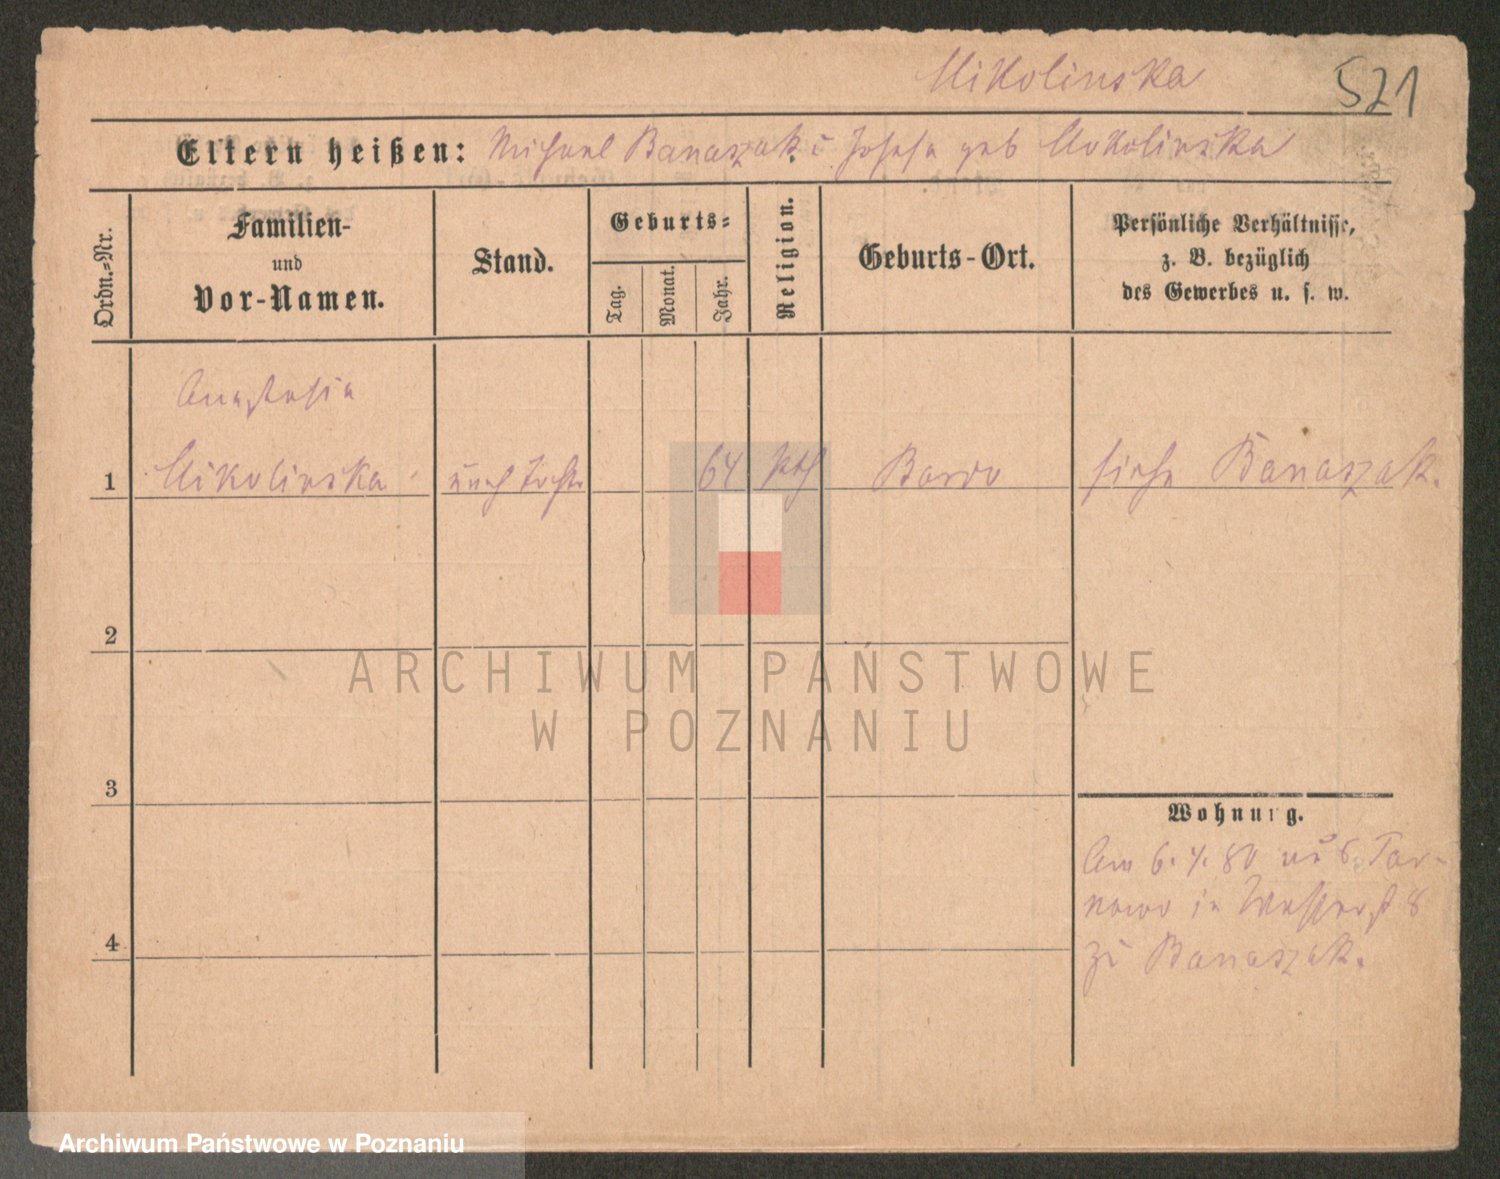 Mikolinska
521
Eltern heißen: Michael Banaszak u Josefa geb Mikolinska
Ordn.=Nr.
Familien-
und
Vor-Namen.
Stand.
Geburts=
Tag.
Monat.
Jahr.
Religion.
Geburts-Ort.
Persönliche Verhältnisse,
z. B. bezüglich
des Gewerbes u. s. w.
Anastasia
1 Mikolinska 64 kth Bardo siehe Banaszak.
2
ARCHIWUM PAŃSTWOWE
W POZNANIU
3
Wohnung.
Am 6. 4. 80 Tar-
nowo in Wasserst 8
zu Banaszak.
4
Archiwum Państwowe w Poznaniu